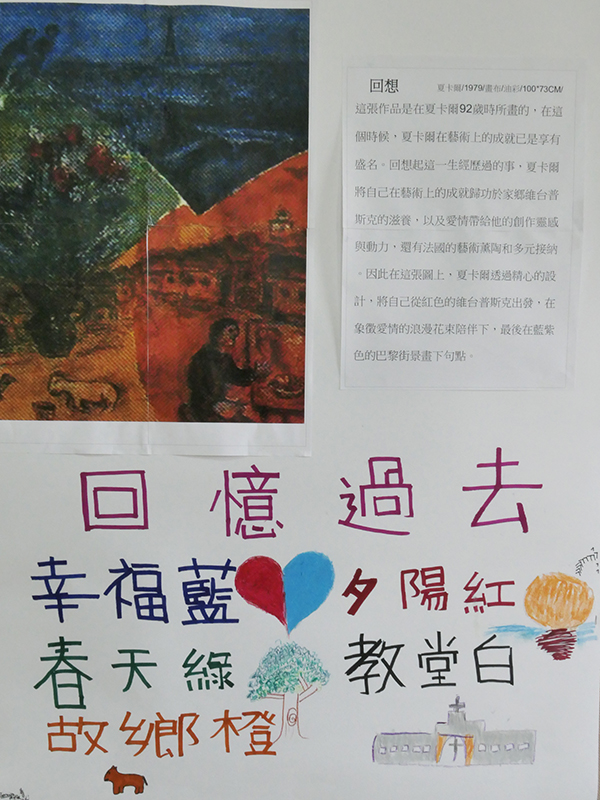 回想 夏卡爾/1979/畫布/油彩/100*73CM/
這張作品是在夏卡爾92歲時所畫的，在這
個時候，夏卡爾在藝術上的成就已是享有
盛名。回想起這一生經歷過的事，夏卡爾
將自己在藝術上的成就歸功於家鄉維台普
斯克的滋養，以及愛情帶給他的創作靈感
與動力，還有法國的藝術薰陶和多元接納
。因此在這張圖上，夏卡爾透過精心的設
計，將自己從紅色的維台普斯克出發，在
象徵愛情的浪漫花束陪伴下，最後在藍紫
色的巴黎街景畫下句點。
回憶過去
幸福藍 夕陽紅
春天綠 教堂白
故鄉橙